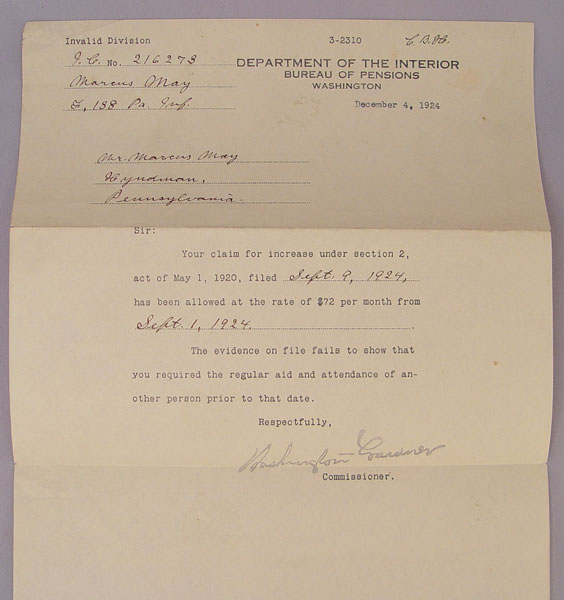 Invalid Division
3-2310
I. C. No. 216273
Marcus May
F, 138 Pa. Inf.
DEPARTMENT OF THE INTERIOR
BUREAU OF PENSIONS
WASHINGTON
December 4, 1924
Mr. Marcus May
Hyndman,
Pennsylvania.
Sir:
Your claim for increase under section 2,
act of May 1, 1920, filed Sept. 9, 1924,
has been allowed at the rate of $72 per month from
Sept. 1, 1924.
The evidence on file fails to show that
you required the regular aid and attendance of an-
other person prior to that date.
Respectfully,
Washington Gardner
Commissioner.